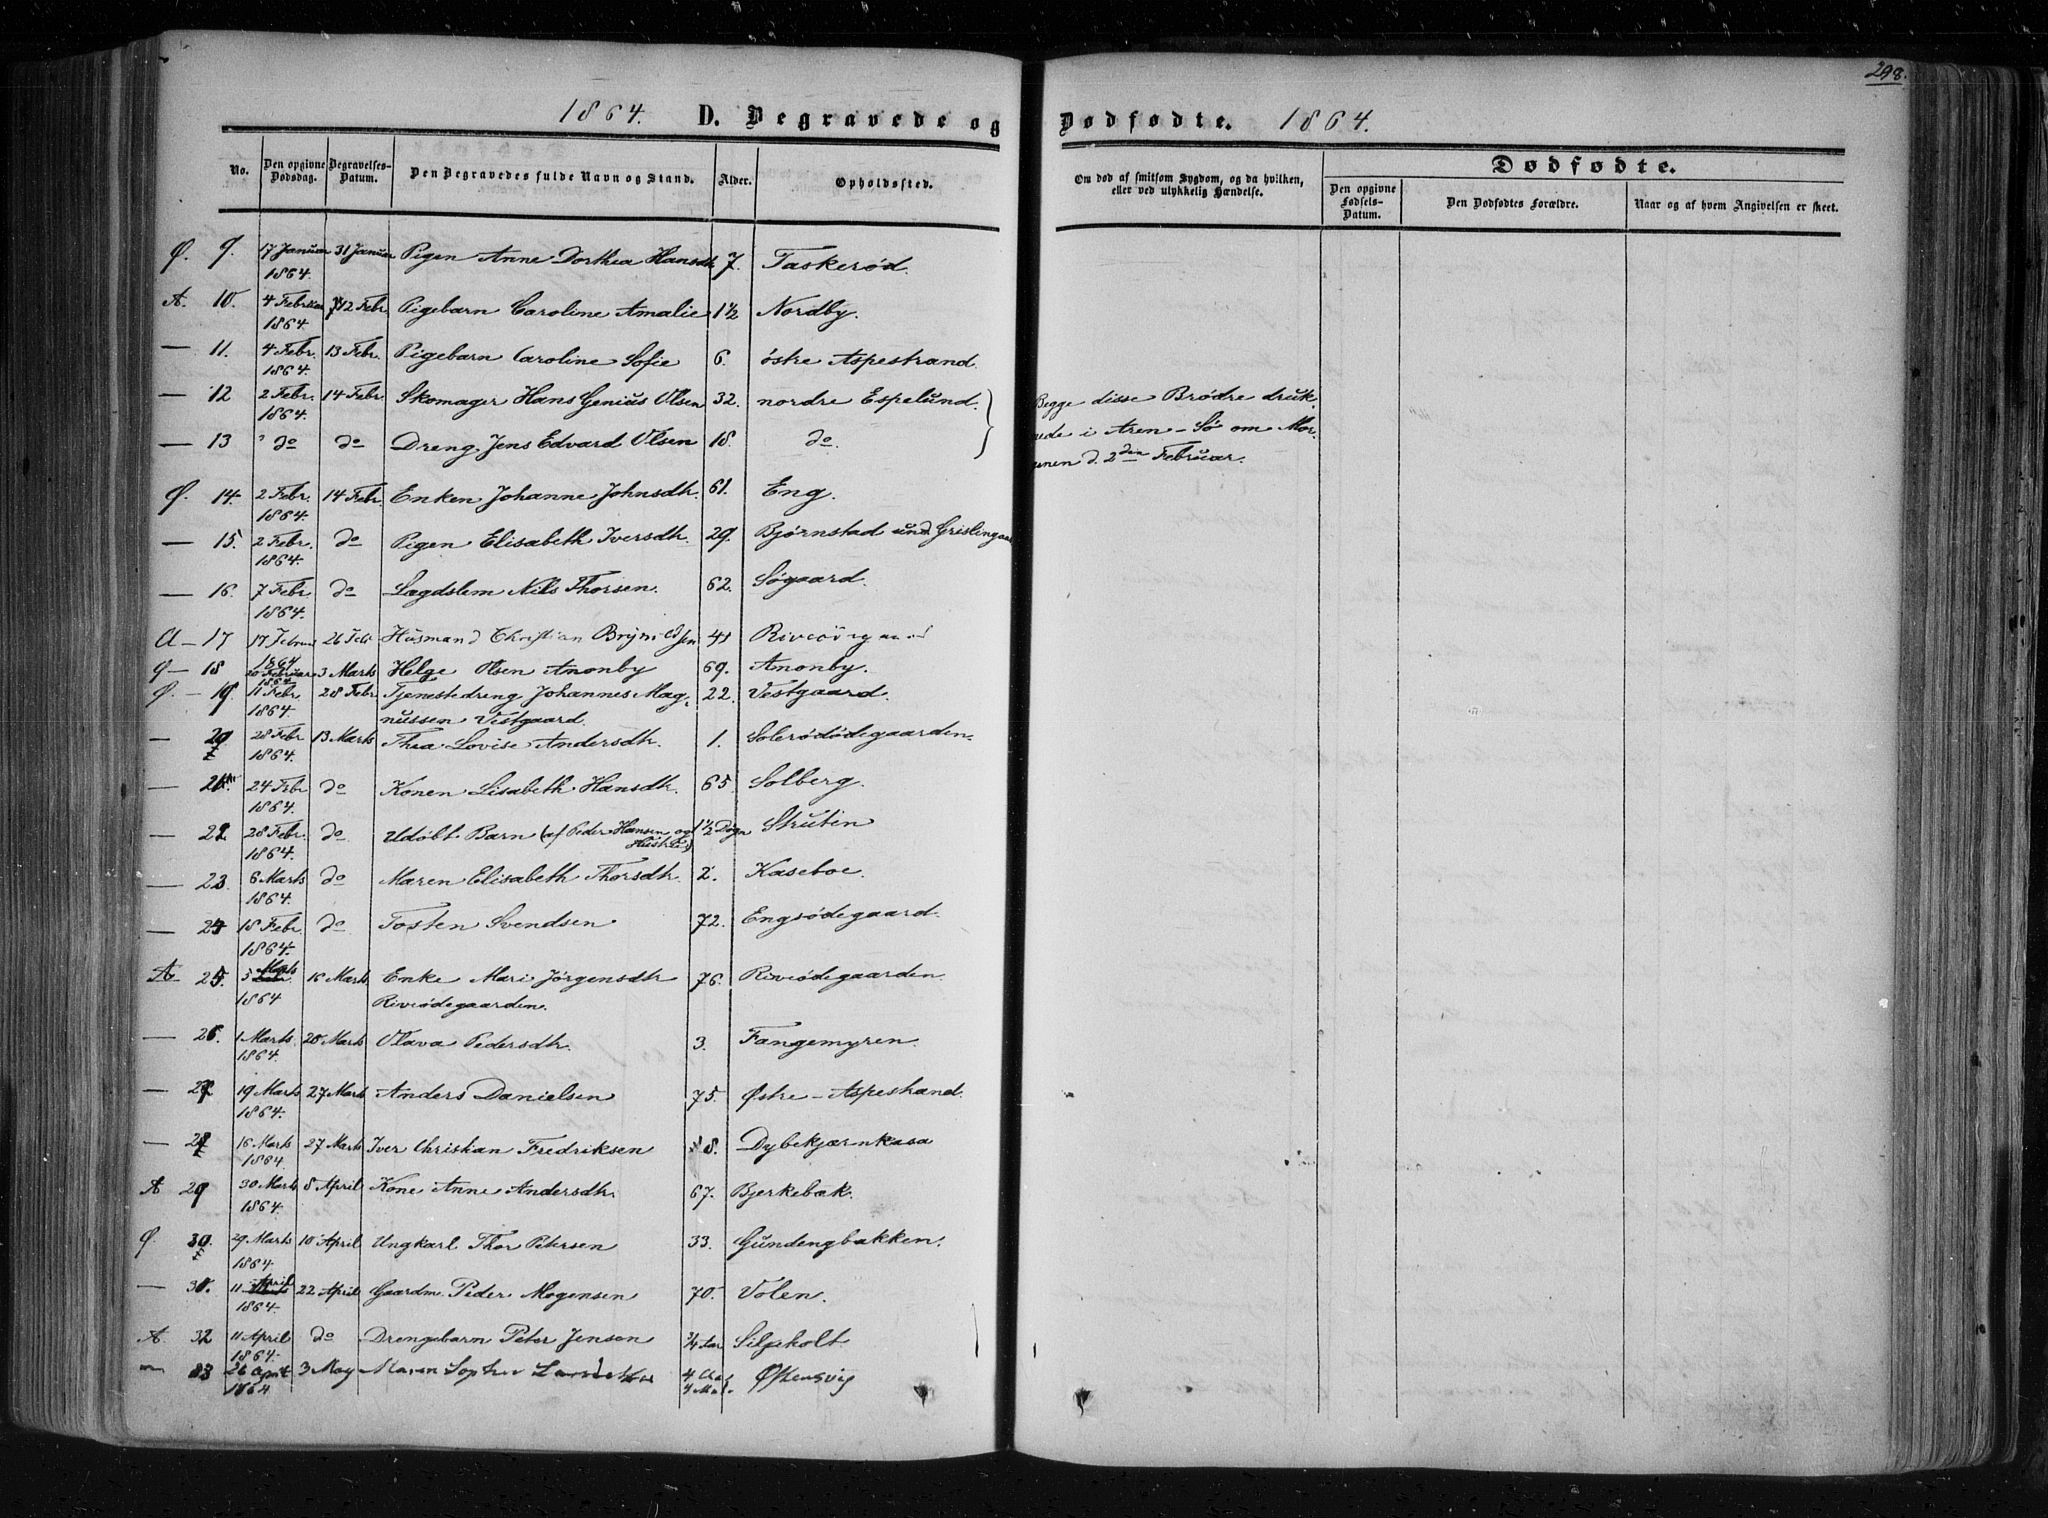 298.
1864. D. Begravede og Dødfødte. 1864.
No.
Den opgivne Dødsdag.
Begravelses-Datum.
Den Begravedes fulde Navn og Stand.
Alder.
Opholdssted.
Om død af smitsom Sygdom, og da hvilken, eller ved ulykkelig Hændelse.
Dødfødte.
Den opgivne Fødsels-Datum.
Den Dødfødtes Forældre.
Naar og af hvem Angivelsen er skeet.
Ø. 9. 17 Januar 31 Januar Pigen Anne Dorthea Hansdtr 7. Taskerød.
1864.
A. 10. 4 Februar 12 Febr. Pigebarn Caroline Amalie 1½ Nordby.
1864.
— 11. 4 Febr. 13 Febr. Pigebarn Caroline Sofie 6. østre Aspestrand.
1864.
— 12 2 Febr. 14 Febr. Skomager Hans Genius Olsen 32. nordre Espelund. Begge disse Brødre druk-
1864.
— 13 do do Dreng Jens Edvard Olsen 18. do. nede i Aren-Sø om Mor-
genen d. 2den Februar.
Ø. 14. 2 Febr. 14 Febr. Enken Johanne Johnsdtr. 61. Eng.
1864.
— 15. 2 Febr. do Pigen Elisabeth Iversdtr. 29. Bjørnstad und Grislingaas
1864.
— 16. 7 Febr do Lægdslem Nils Thorsen. 62. Søgaard.
1864.
A — 17 17 Februar 26 Feb Husmand Christian Brynildsen 41
1864
Ø — 18 20 Februar 3 Marts Helge Olsen Anonby 69. Anonby.
1864
Ø. — 19. 11 Febr. 28 Febr. Tjenestedreng Johannes Mag- 22. Vestgaard.
1864. nussen Vestgaard.
— 20 28 Febr 13 Marts Thea Lovise Andersdtr. 1. Solerødødegaarden.
1864.
— 21. 24 Febr do Konen Lisabeth Hansdtr. 65. Solberg.
1864.
— 22. 28 Febr. do Udøbt Barn (af Peder Hansen og 1½ Døgn Strutin
1864. Hustru)
— 23 6 Marts do Maren Elisabeth Thorsdtr. 2. Kaseboe.
1864.
— 24 18 Febr. do Tosten Svendsen 72. Engsødegaard.
1864.
A — 25. 5 Marts 16 Marts Enke Mari Jörgensdtr 76. Riveødegaarden.
1864 Riveødegaarden.
— 26. 1 Marts. 28 Marts Olava Pedersdtr. 3. Fangemyren.
1864.
— 27 19 Marts 27 Marts Anders Danielsen 75. Østre-Aspestrand.
1864.
— 28 16 Marts 27 Marts Iver Christian Fredriksen 8. Dybekjærnkasa
1864.
A 29 30 Marts 8 April Kone Anne Andersdtr. 67. Bjerkebæk.
1864.
Ø. 30. 29 Marts 10 April Ungkarl Thor Petersen 33. Gundengbakken.
1864.
— 31. 11 April 22 April Gaardm. Peder Mogensen 70. Volen.
1864
A 32 11 April do Drengebarn Peter Jensen ¾ Aar Siljeholt.
1864.
— 33 26 April 3 May Maren Sophie
1864